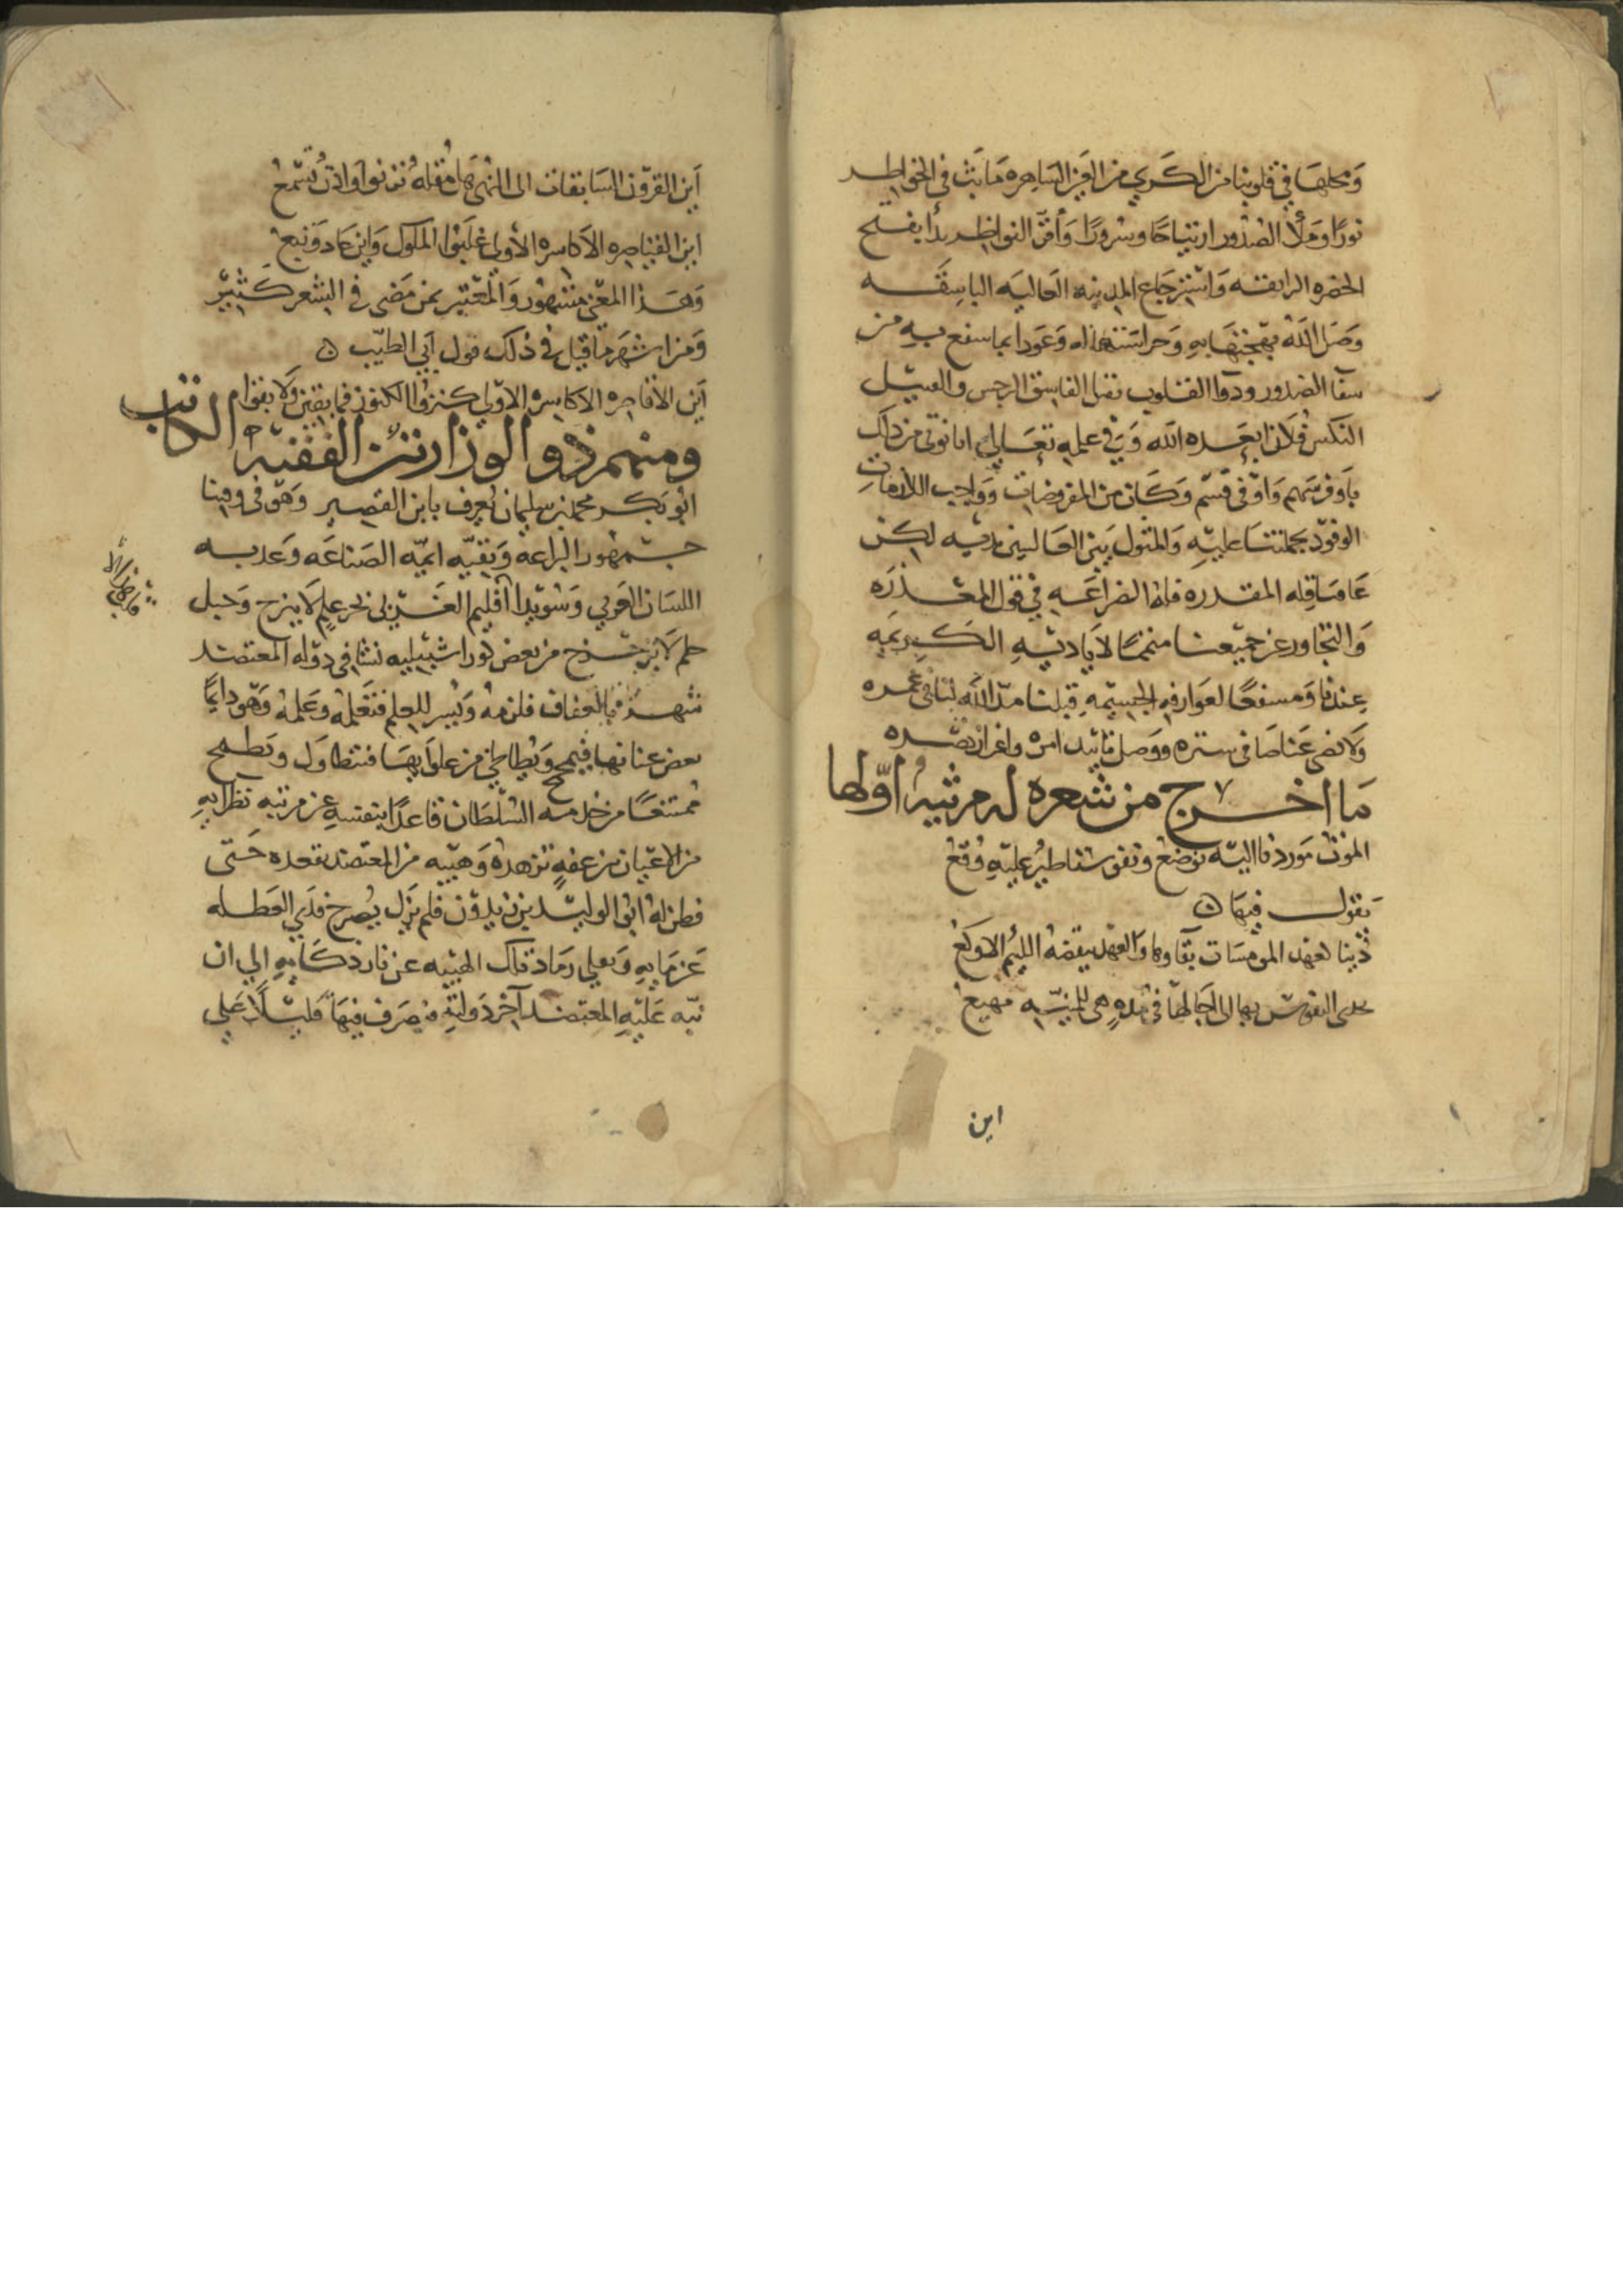 ومحلها في قلوبنا من الكري من العين الساهره ما بث في الخواطر
نورا وملأ الصدور ارتياحا وسرورا وأقر النواظر بدأ بفتح
الحضره الرايقه واسترجاع المدينه العاليه الباسقه
وصل الله بهجتها به وحراستها له وعودا بما سفع به من
سقا الصدور ودوا القلوب بقتل الفاسق الرجس والفسل
النكس فلان ابعده الله وفي علمه تعالي انا نوتي من ذلك
باوفر سهم واوفي قسم وكان من المفروضات وواجب اللازمات
الوفود بجملتنا عليه والمثول بين العالمين لديه لكن
عاقه المقدره فله الضراعه في قبول المعذره
والتجاوز عن جميعنا متمما لاياديه الكريمه
عندنا ومسفعا لعوارفه الجسيمه قبلنا مد الله لنا في عمره
ولا نضى عنا ضافي ستره ووصل تاييد امره واعزاز نصره
ما اخرج من شعره له مرثيه اولها
الموت مورد نا اليه نوضع ونفوسنا طير عليه وقع
يقول فيها
ذينا لعهد المومسات بقاوها والعهد ينقضه اللئيم الاوكع
تحدى النفوس بها الى اجالها في مده هي للمنيه مهيع
اين
اين القرون السابقات الى النهى هل مقله ترنوا واذن تسمع
اين القياصره الاكاسره الأولي غلبوا الملوك واين عاد وتبع
وهذا المعنى مشهور والمعتبر بمن مضى في الشعر كثير
ومن اشهر ما قيل في ذلك قول ابي الطيب
اين الاقاصره الاكاسره الاولي كنزوا الكنوز فما بقين ولا بقوا
ومنهم ذو الوزارتين الفقيه الكاتب
ابو بكر محمد بن سليمان يعرف بابن القصير وهو في وقتنا
جمهور البراعه وبقيه ايمه الصناعه وعذبه
اللسان العربي وسويدا اقليم الغربي بحر علم لا ينزح وجبل
حلم لا يزحزح من بعض كور اشبيليه نشا في دوله المعتضد
شهد بالعفاف فلزمه ويسر للعلم فتعلمه وعلمه وهو دايما
بعض عنانها فيجمح ويطاطي من علوايها فتتطاول وتطمح
ممتنعا من خدمه السلطان قاعدا بنفسه عن مرتبه نظرايه
من الاعيان من عفه تزهده وهيبه من المعتضد تقعده حتى
فطن له ابو الوليد بن زيدون فلم يزل يصرح قذي العطله
عن مايه ويجلي رماد تلك الهيبه عن نار ذكايه الي ان
نبه عليه المعتضد آخر دولته فتصرف فيها قليلا على